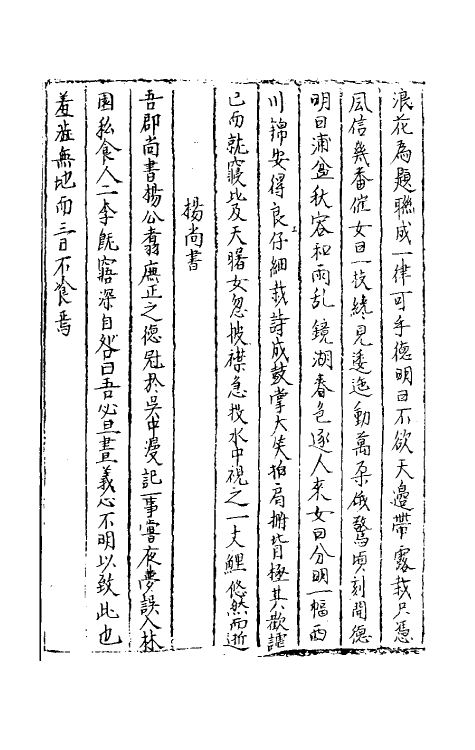 浪花為題聯成一律可乎德明曰不欲天邊帶露栽只憑
風信幾番催女曰一枝繞見逶迤動萬朵俄驚頃刻開德
明曰蒲盆秋容和雨乱鏡湖春色逐人来女曰分明一幅西
川錦安得良仔細裁詩成鼓掌大笑拍肩拊背極其歡謔
已而就寢比及天曙女忽披襟急投水中視之一丈鯉悠然而逝
楊尚書
吾郡尚書楊公翥廉正之德冠於吳中漫記一事嘗夜夢誤入林
園私食人二李既寤深自咎曰吾必旦晝義心不明以致此也
羞澁無地而三日不飡焉